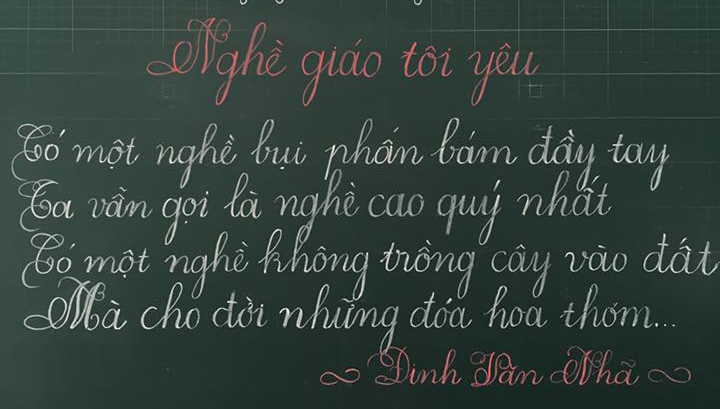 Nghề giáo tôi yêu
Có một nghề bụi phấn bám đầy tay
Ta vẫn gọi là nghề cao quý nhất
Có một nghề không trồng cây vào đất
Mà cho đời những đóa hoa thơm...
~ Đinh Văn Nhã ~